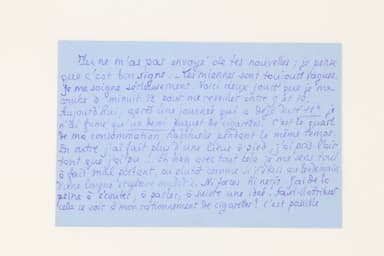 Tu ne m'as pas envoyé de tes nouvelles ; je pense
que c'est bon signe. – Les miennes sont toujours vagues.
Je me soigne sérieusement. Voici deux jours que je me
couche à minuit et pour me réveiller entre 9 et 10.
Aujourd'hui, après une journée qui a déjà duré 11h, je
n'ai fumé qu'un demi paquet de cigarettes. C'est le quart
de ma consommation habituelle pendant le même temps.
En outre j'ai fait plus d'une lieue à pied, j'ai pris l'air
tant que j'ai pu ... Eh bien avec tout cela je me sens tout
à fait mal portant, ou plutôt comme si j'étais au lendemain
d'une longue et maladie. Ni forces ni nerfs. J'ai de la
peine à écouter, à parler, à suivre une idée. Faut-il attribuer
cela ce soir à mon rationnement de cigarettes ! c'est possible